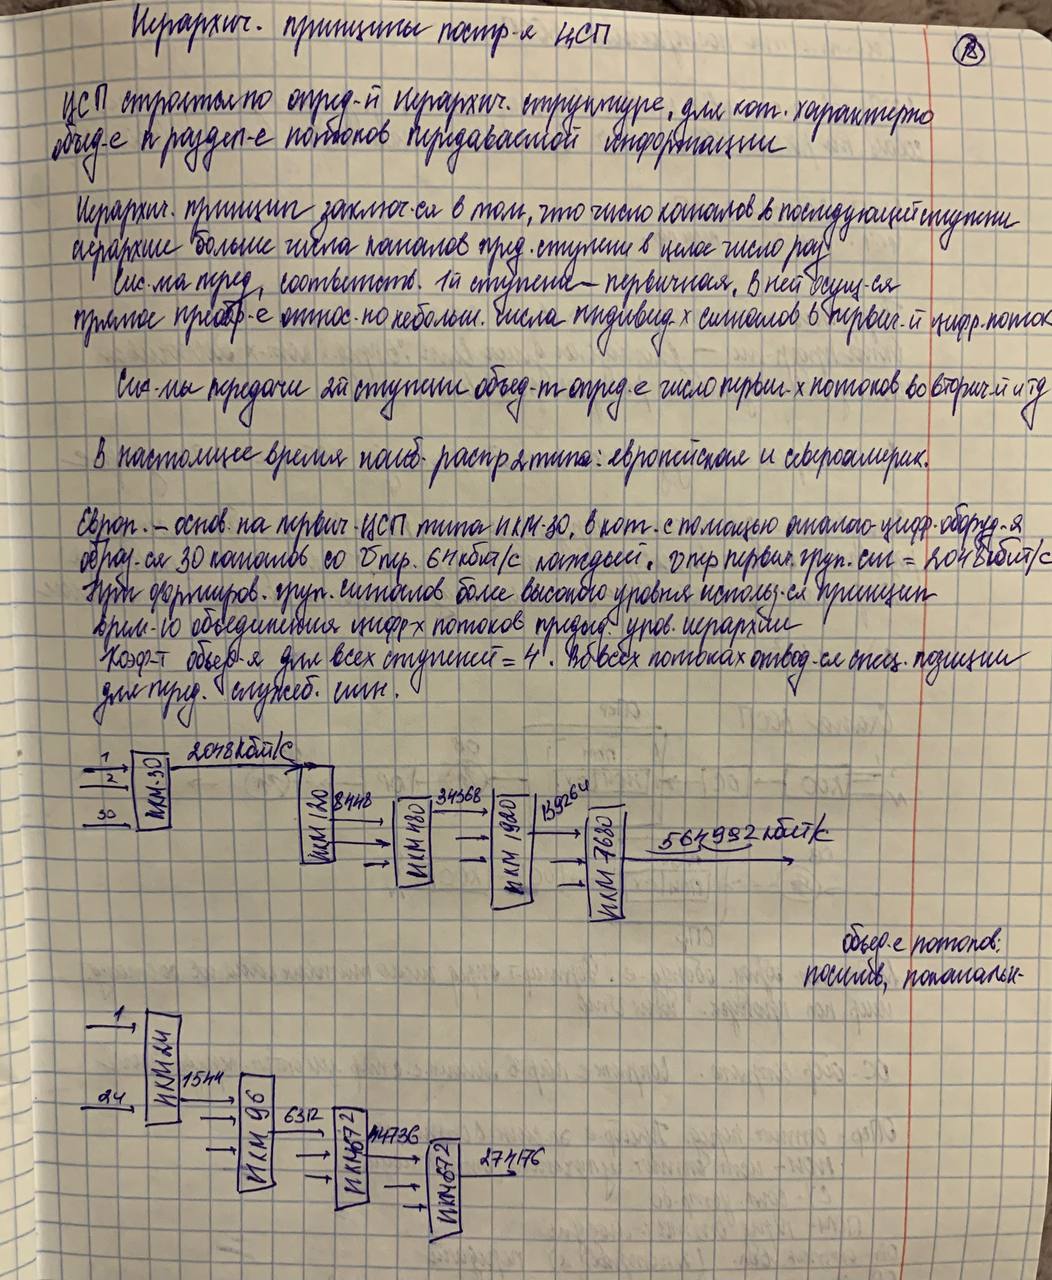 Иерархич. принципы постр-я ЦСП
12
ЦСП строятся по опред-й иерархич. структуре, для кот. характерно
объед-е и раздел-е потоков передаваемой информации
Иерархич. принцип заключ-ся в том, что число каналов в последующей ступени
иерархии больше числа каналов пред. ступени в целое число раз
Сис-ма перед, соответств. 1й ступени – первичная. В ней осущ-ся
прямое преобр-е относ-но небольш. числа индивид-х сигналов в первич-й цифр. поток
Сис-мы передачи 2й ступени объед-т опред-е число первич-х потоков во вторич-й и тд
В настоящее время наиб. распр 2 типа: европейская и североамерик.
Европ. – основ. на первич. ЦСП типа ИКМ-30, в кот. с помощью аналого-цифр. оборуд-я
образ-ся 30 каналов со Vпер. 64 кбит/с каждый. Vпер первич. груп. сиг = 2048 кбит/с
При формиров. груп. сигналов более высокого уровня использ-ся принцип
врем-го объединения цифр-х потоков предыд. уров. иерархии
Коэф-т объед-я для всех ступеней = 4. Во всех потоках отвод-ся спец. позиции
для перед. служеб. сигн.
1
2
30
ИКМ-30
2048 кбит/с
ИКМ 120
8448
ИКМ 480
34368
ИКМ 1920
139264
ИКМ 7680
564992 кбит/с
объед-е потоков:
посимв, поканальн-
1
24
ИКМ 24
1544
ИКМ 96
6312
ИКМ 672
44736
ИКМ 672
274176